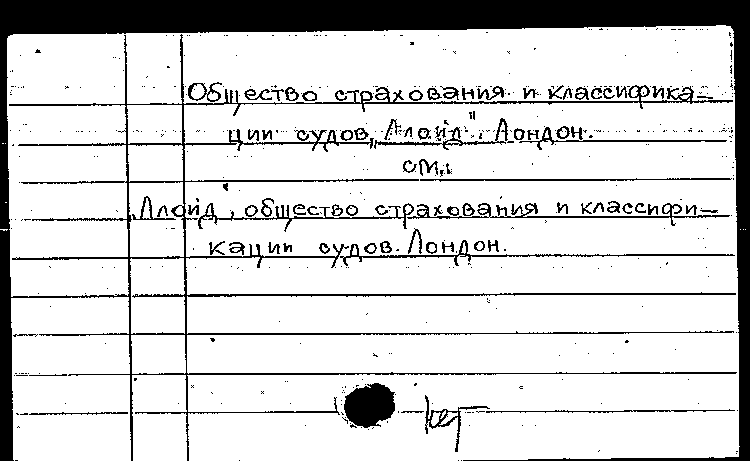 Общество страхования и классифика-
ции судов „Ллойд". Лондон.
см.:
„Ллойд", общество страхования и классифи-
кации судов. Лондон.